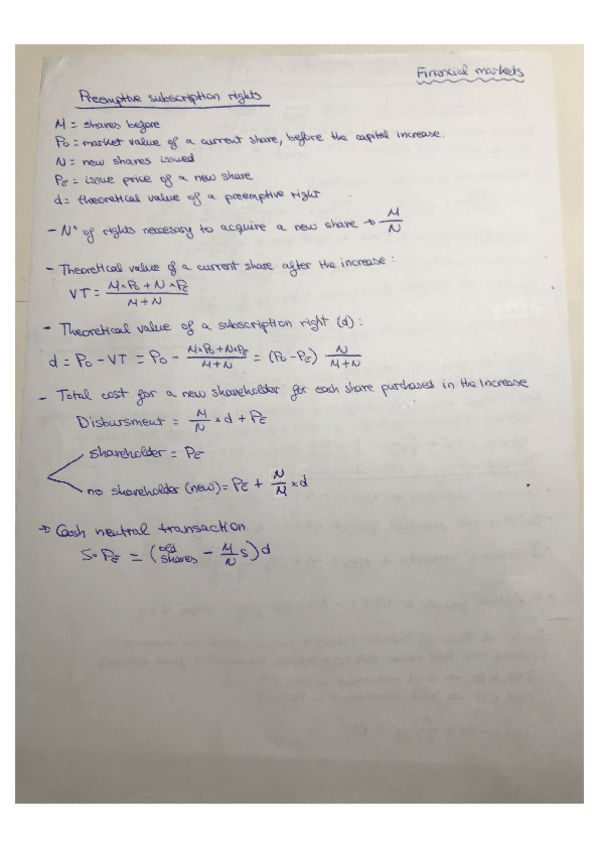 Financial markets
Preemptive subscription rights
M = shares before
P₀ = market value of a current share, before the capital increase.
N = new shares issued
P_E = issue price of a new share
d = theoretical value of a preemptive right
- Nº of rights necessary to acquire a new share → M/N
- Theoretical value of a current share after the increase:
VT = (M×P₀ + N×P_E)/(M+N)
- Theoretical value of a subscription right (d):
d = P₀ - VT = P₀ - (M×P₀+N×P_E)/(M+N) = (P₀-P_E) N/(M+N)
- Total cost for a new shareholder for each share purchased in the increase
Disbursment = M/N × d + P_E
shareholder = P_E
no shareholder (new) = P_E + N/M × d
→ Cash neutral transaction
S·P_E = (old shares - M/N S) d